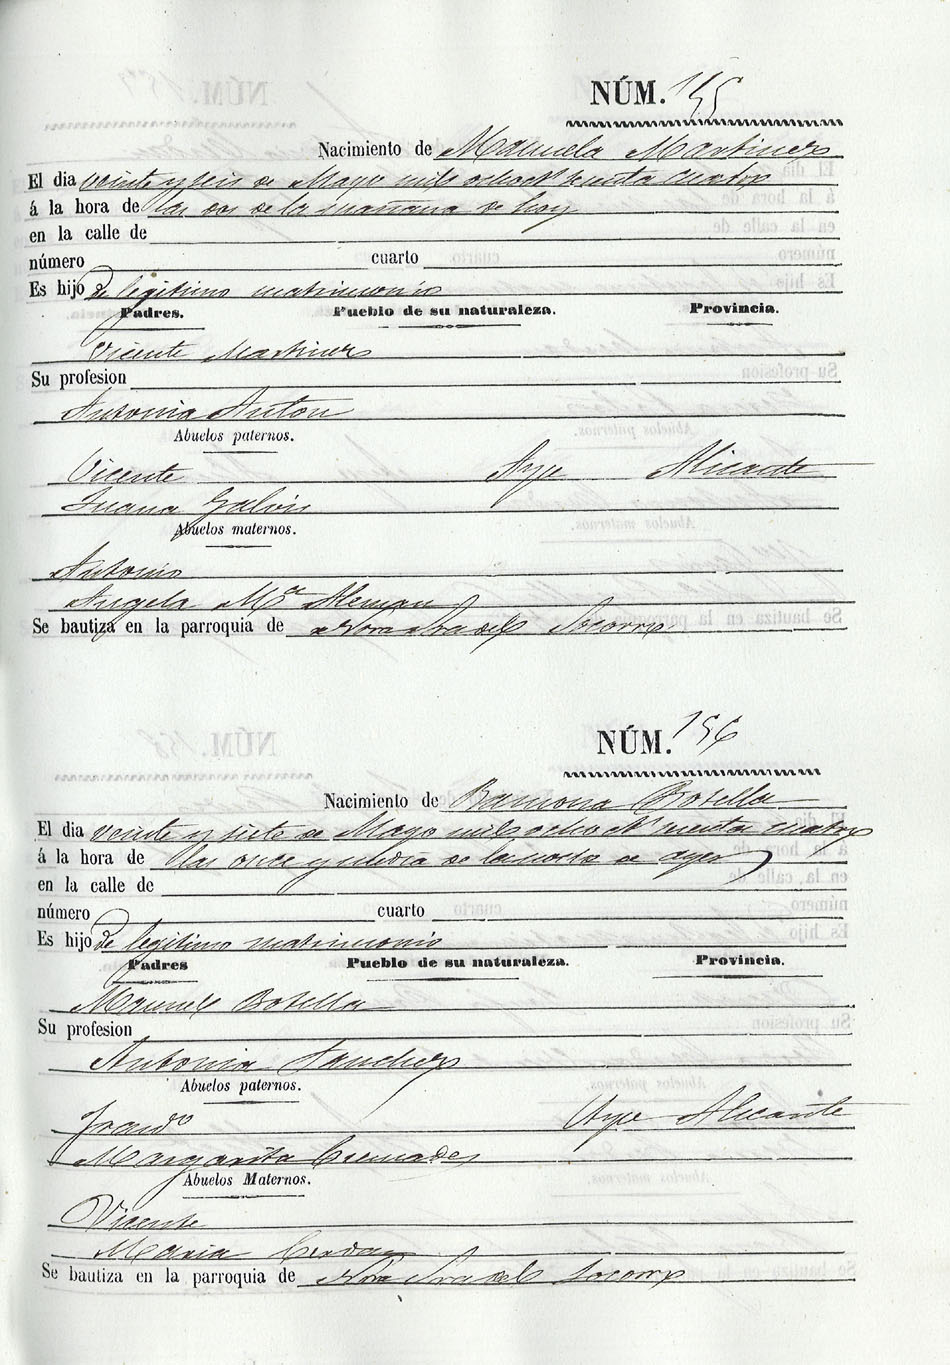 NÚM. 155
Nacimiento de Manuela Martinez
El dia veinte y seis de Mayo mil ocho Nta cuatro
á la hora de las dos de la mañana de hoy
en la calle de
número cuarto
Es hijo de legitimo matrimonio
Padres. Pueblo de su naturaleza. Provincia.
Vicente Martinez
Su profesion
Antonia Anton
Abuelos paternos.
Vicente Aspe Alicante
Juana Galvis
Abuelos maternos.
Antonio
Angela Mª Aleman
Se bautiza en la parroquia de Ntra Sra del Socorro
NÚM. 156
Nacimiento de Ramona Botella
El dia veinte y siete de Mayo mil ocho cuatro
á la hora de las once y media de la noche de ayer
en la calle de
número cuarto
Es hijo de legitimo matrimonio
Padres Pueblo de su naturaleza. Provincia.
Manuel Botella
Su profesion
Antonia Sanchez
Abuelos paternos.
Franco Aspe Alicante
Margarita Cremades
Abuelos Maternos.
Vicente
Maria Cerdan
Se bautiza en la parroquia de Ntra Sra del Socorro